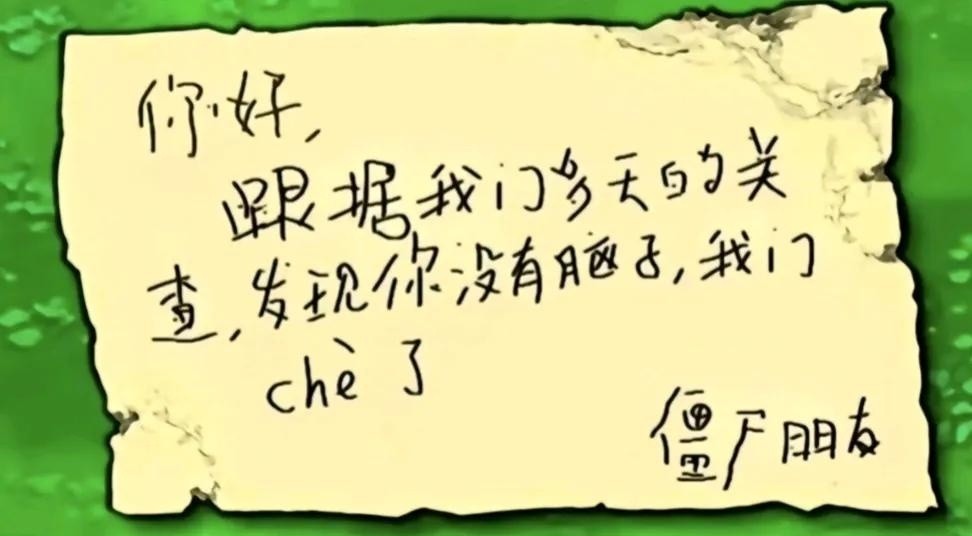 你好,
跟据我门多天的关
查,发现你没有脑子,我门
chè了
僵尸朋友